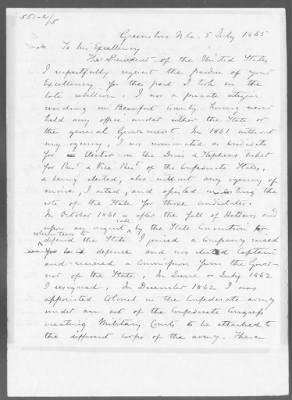 551-2/5
Greensboro N.Ca. 5 July 1865
To his Excellency
The President of the United States
I respectfully request the pardon of your
Excellency for the part I took in the
late rebellion. I am a private citizen
residing in Beaufort County having never
held any office under either the State or
the general Government. In 1861 without
my agency, I was nominated as candidate
for Elector on the Davis & Stephens ticket
for Pres't & Vice Pres't of the Confederate States,
& being elected, also without any agency of
mine, I acted, and assisted in casting the
vote of the State for those candidates.
In October 1861 after the fall of Hatteras and
upon an urgent call by the State Convention for
volunteers to
defend the State I joined a Company raised
for defence and was elected Captain
and received a Commission from the Govern-
ment of the State. In June or July 1862
I resigned. In December 1862 I was
appointed Colonel in the Confederate army
under an act of the Confederate Congress
creating Military Courts to be attached to
the different corps of the army. There